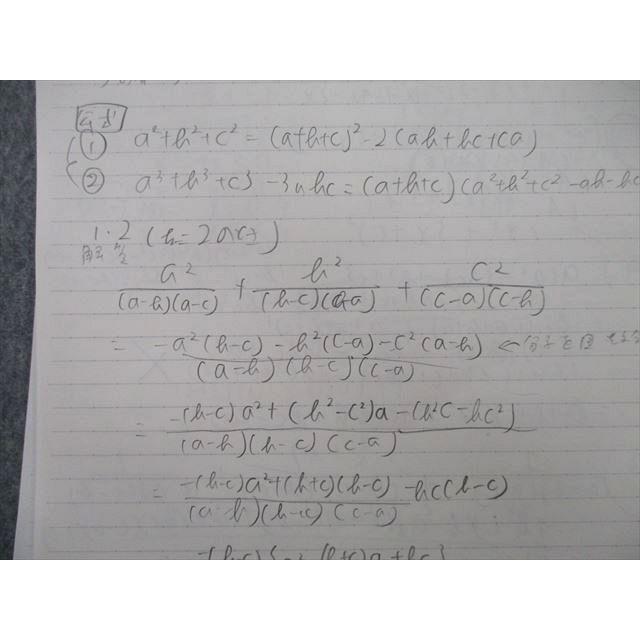 ① a²+b²+c² = (a+b+c)² - 2(ab+bc+ca)
② a³+b³+c³ - 3abc = (a+b+c)(a²+b²+c² - ab - bc
1.2
a²/(a-b)(a-c) + b²/(b-c)(b-a) + c²/(c-a)(c-b)
= -a²(b-c) - b²(c-a) - c²(a-b)/(a-b)(b-c)(c-a) ←
= -(b-c)a² + (b²-c²)a - (b²c - bc²)/(a-b)(b-c)(c-a)
= -(b-c)a² + (b+c)(b-c) - bc(b-c)/(a-b)(b-c)(c-a)